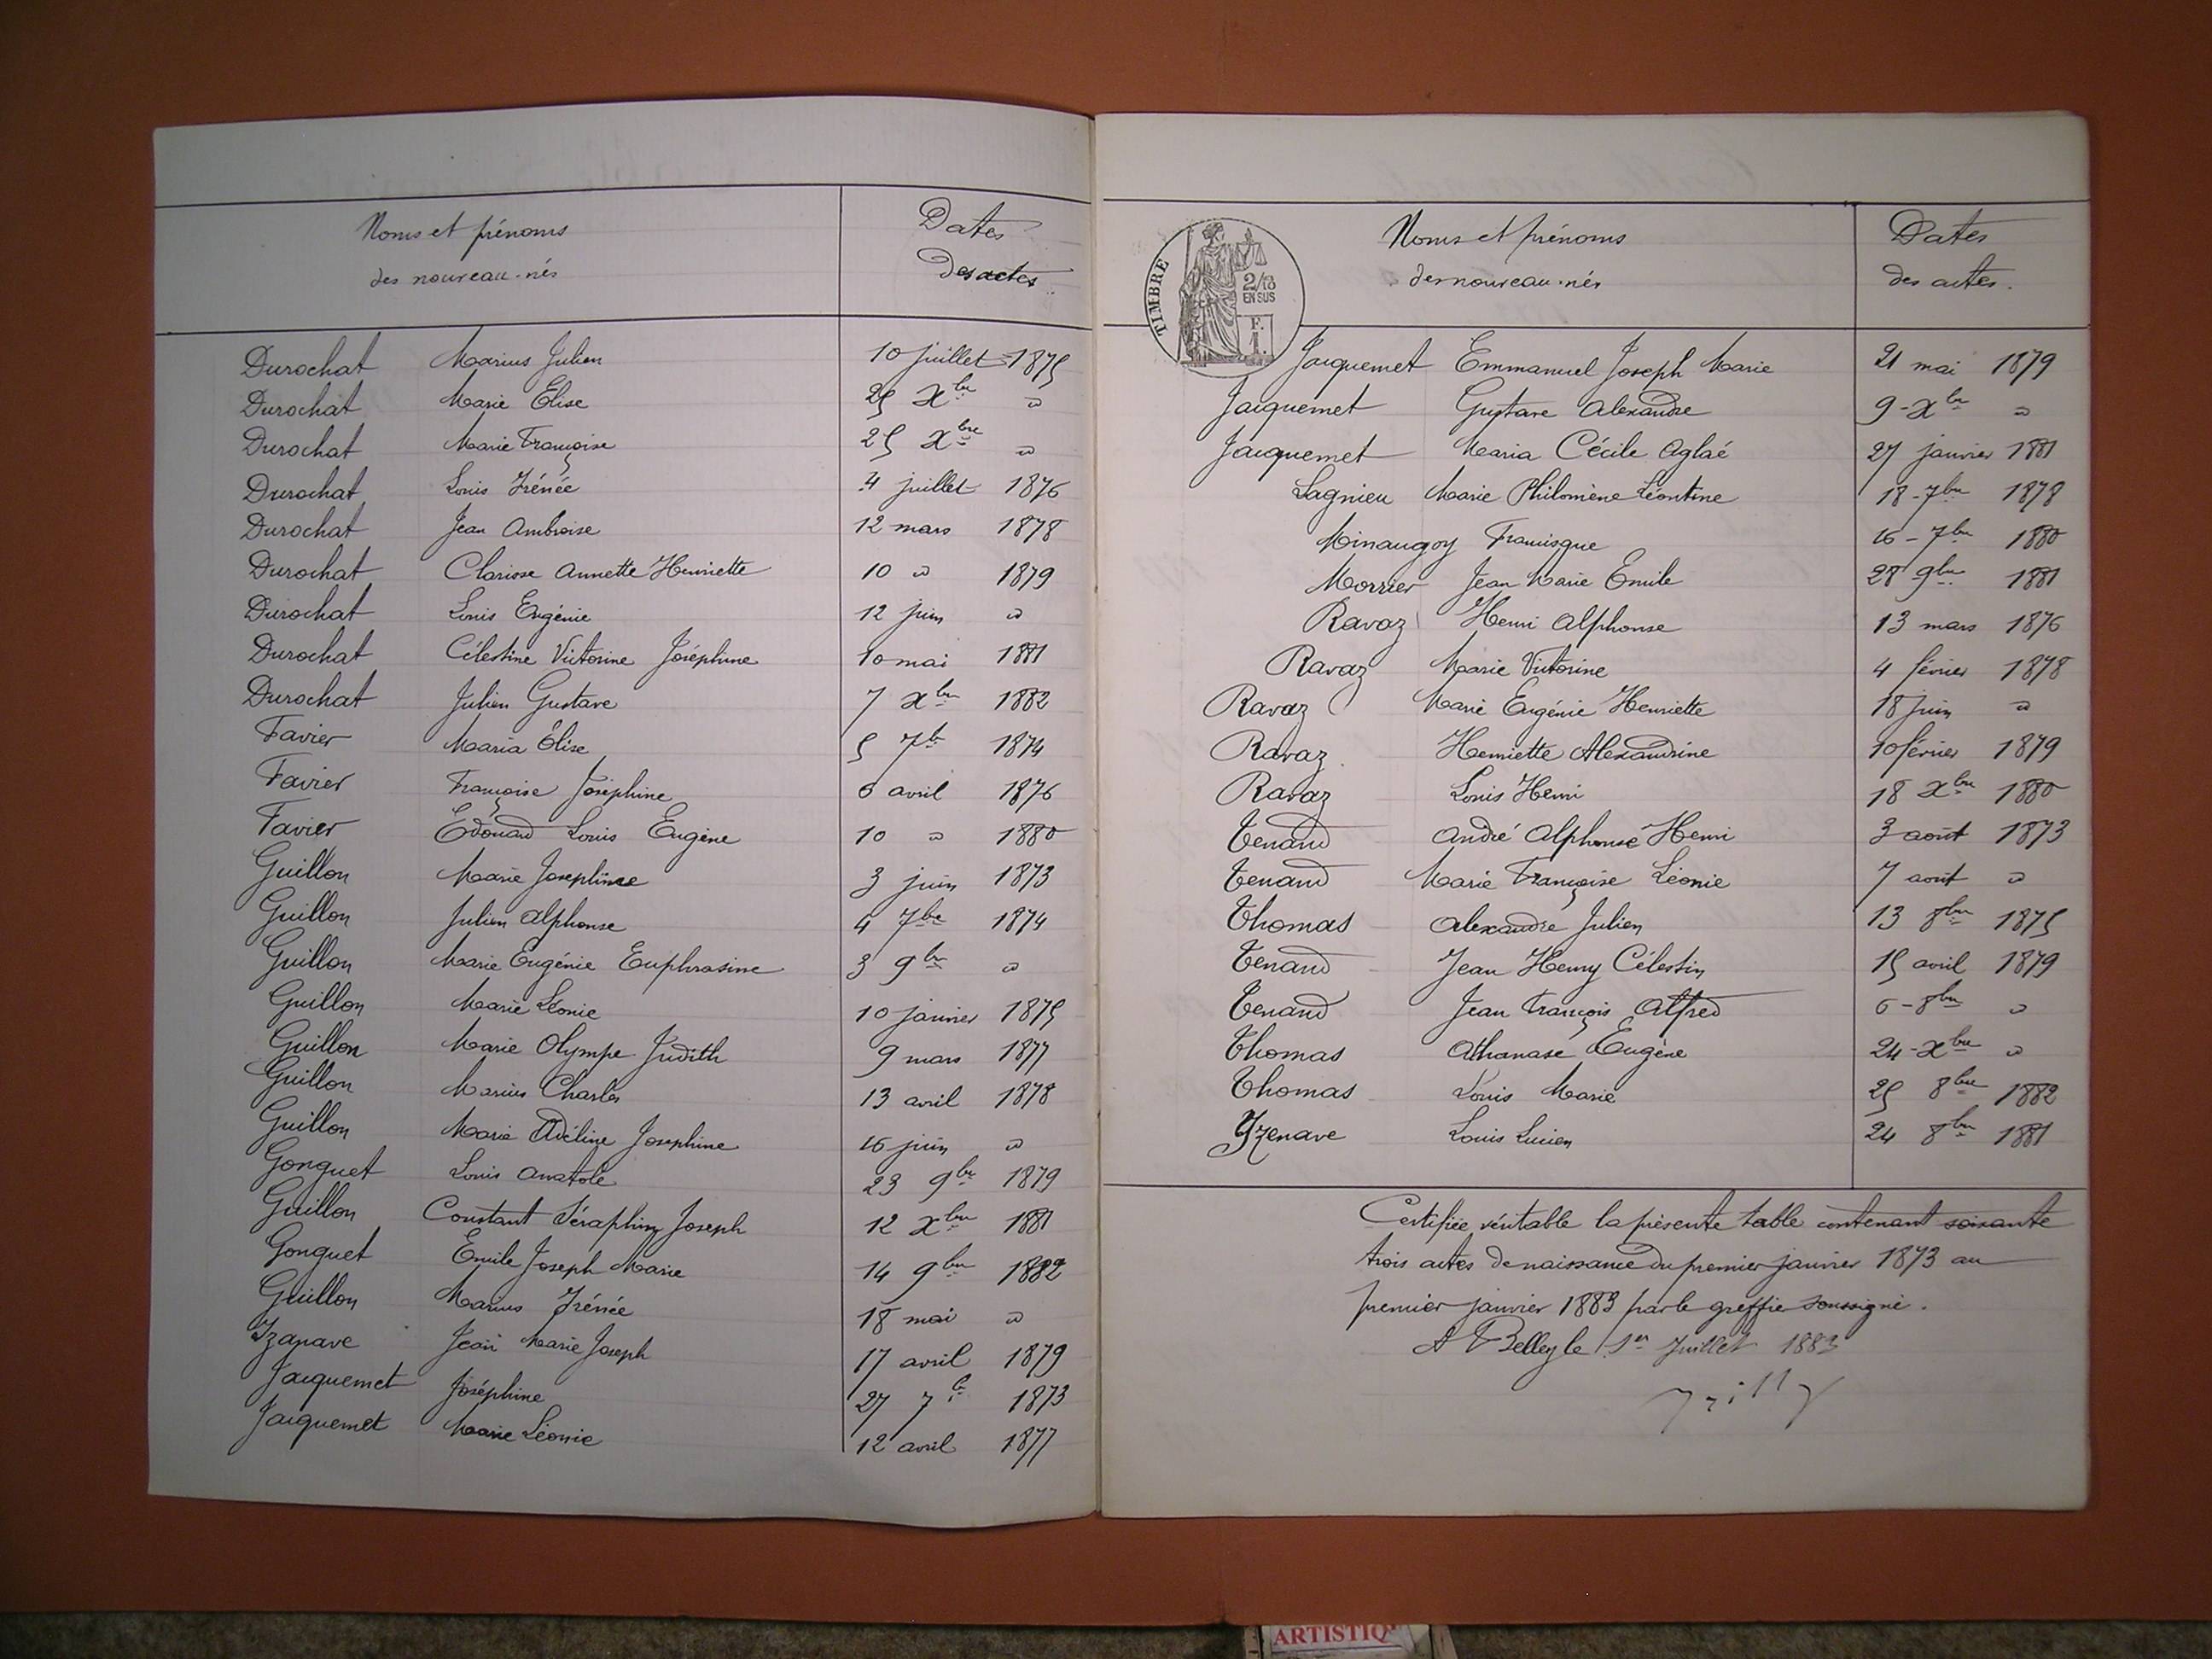 Noms et prénoms
des nouveau-nés
Dates
des actes
Durochat Marius Julien 10 juillet 1875
Durochat Marie Elise 25 Xbre "
Durochat Marie Françoise 25 Xbre "
Durochat Louis Irénée 4 juillet 1876
Durochat Jean Ambroise 12 mars 1878
Durochat Clarisse Annette Henriette 10 " 1879
Durochat Louis Eugénie 12 juin "
Durochat Célestine Victorine Joséphine 10 mai 1881
Durochat Julien Gustave 7 Xbre 1882
Favier Maria Elise 5 7b 1874
Favier Françoise Joséphine 6 avril 1876
Favier Edouard Louis Eugène 10 " 1880
Guillon Marie Josephine 3 juin 1873
Guillon Julien Alphonse 4 7bre 1874
Guillon Marie Eugénie Euphrasine 3 9bre "
Guillon Marie Léonie 10 janvier 1875
Guillon Marie Olympe Judith 9 mars 1877
Guillon Marius Charles 13 avril 1878
Guillon Marie Adéline Josephine 16 juin "
Gonguet Louis Anatole 23 9bre 1879
Guillon Constant Séraphin Joseph 12 Xbre 1881
Gonguet Emile Joseph Marie 14 9bre 1882
Guillon Marius Irénée 18 mai "
Izanave Jean Marie Joseph 17 avril 1879
Jacquemet Joséphine 27 7b 1873
Jacquemet Marie Léonie 12 avril 1877
TIMBRE
2/10
EN SUS
F.
1.
Noms et prénoms
des nouveau-nés
Dates
des actes.
Jacquemet Emmanuel Joseph Marie 21 mai 1879
Jacquemet Gustave Alexandre 9-Xbre "
Jacquemet Maria Cécile Aglaé 27 janvier 1881
Lagnieu Marie Philomène Léontine 18-7bre 1878
Minaugoy Francisque 16-7bre 1880
Morrier Jean Marie Emile 28 9bre 1881
Ravaz Henri Alphonse 13 mars 1876
Ravaz Marie Victorine 4 février 1878
Ravaz Marie Eugénie Henriette 18 juin "
Ravaz Henriette Alexandrine 10 février 1879
Ravaz Louis Henri 18 Xbre 1880
Tenand André Alphonse Henri 3 août 1873
Tenand Marie Françoise Léonie 7 août "
Thomas Alexandre Julien 13 8bre 1875
Tenand Jean Henry Célestin 15 avril 1879
Tenand Jean François Alfred 6-8bre "
Thomas Athanase Eugène 24-Xbre "
Thomas Louis Marie 25 8bre 1882
Yzenave Louis Lucien 24 8bre 1881
Certifiée véritable la présente table contenant soixante
trois actes de naissance du premier janvier 1873 au
premier janvier 1883 par le greffie soussigné.
A Belley le 1er Juillet 1883
ARTISTIQ